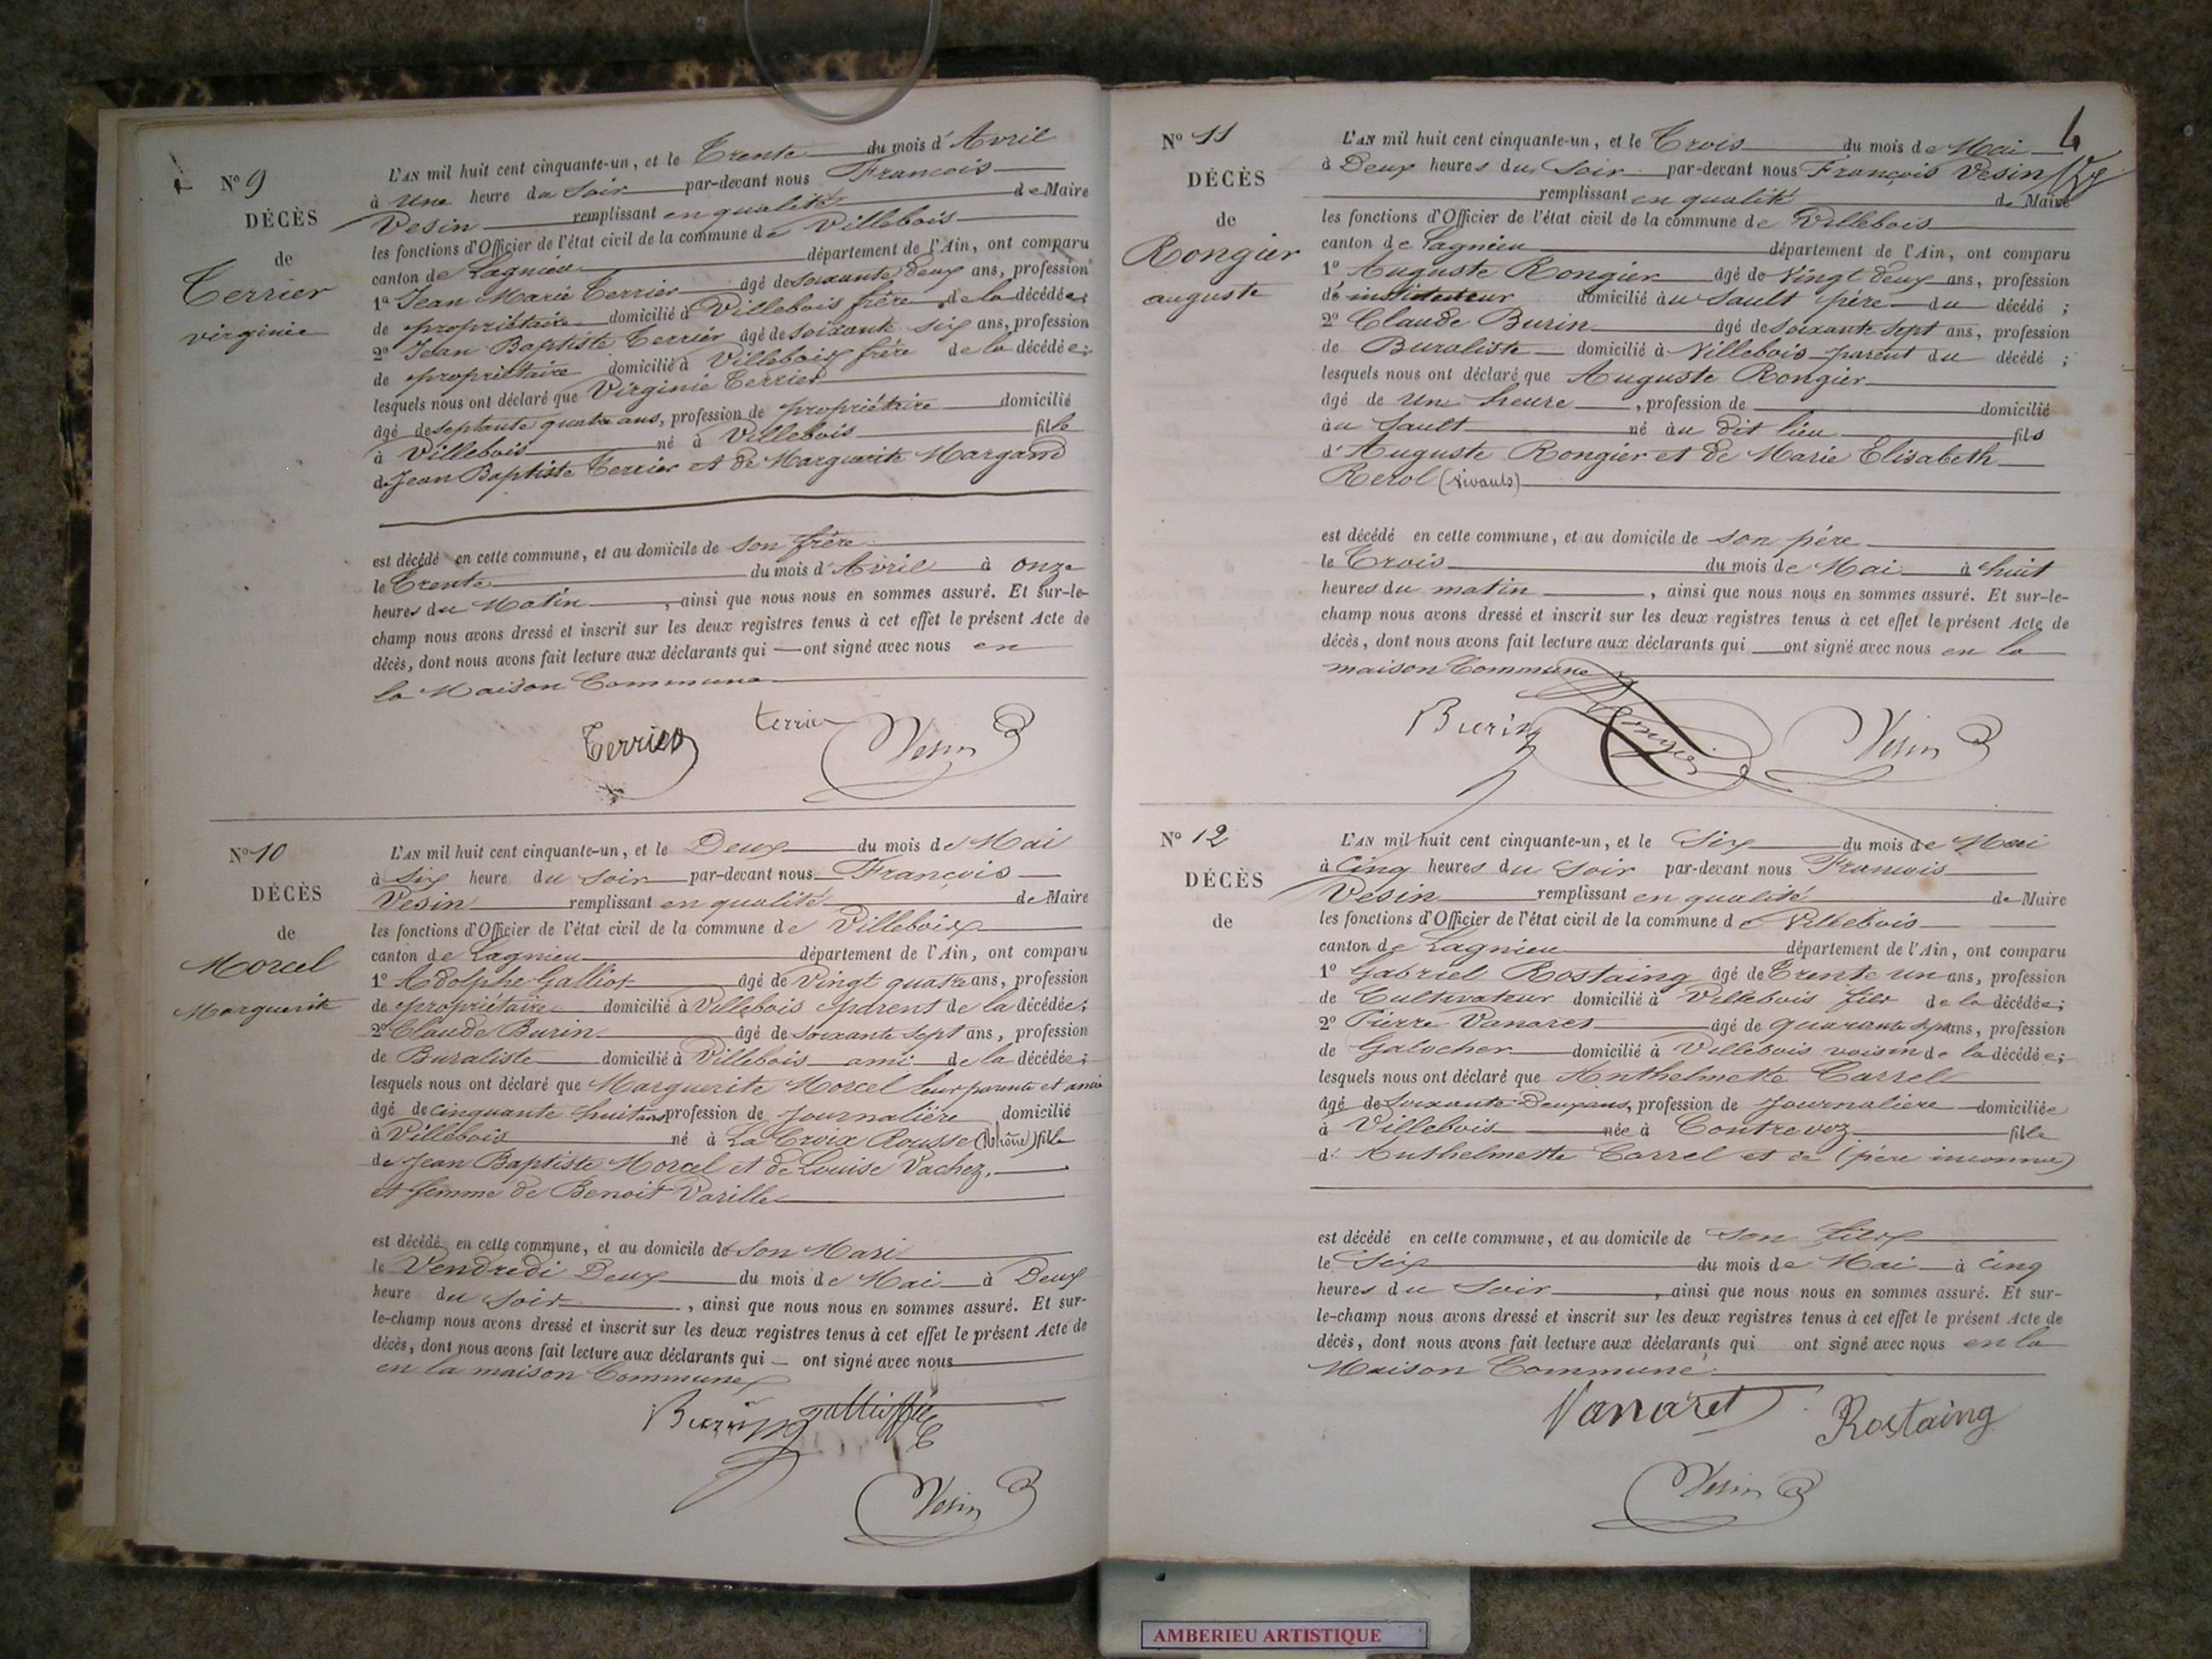 N° 9
DÉCÈS
de
Terrier
virginie
L'AN mil huit cent cinquante-un, et le Trente du mois d'Avril
à Une heure du Soir par-devant nous François
Vesin remplissant en qualité de Maire
les fonctions d'Officier de l'état civil de la commune de Villebois
canton de Lagnieu département de l'Ain, ont comparu
1° Jean Marie Terrier âgé de soixante deux ans, profession
de propriétaire domicilié à Villebois frère de la décédée;
2° Jean Baptiste Terrier âgé de soixante six ans, profession
de propriétaire domicilié à Villebois frère de la décédée;
lesquels nous ont déclaré que Virginie Terrier
âgé de septante quatre ans, profession de propriétaire domicilié
à Villebois né à Villebois fille
de Jean Baptiste Terrier et de Marguerite Margand
est décédé en cette commune, et au domicile de son frère
le Trente du mois d'Avril à onze
heures du Matin, ainsi que nous nous en sommes assuré. Et sur-le-
champ nous avons dressé et inscrit sur les deux registres tenus à cet effet le présent Acte de
décès, dont nous avons fait lecture aux déclarants qui ont signé avec nous en
la Maison Commune
Terrier terrier Vesin
N° 10
DÉCÈS
de
Morcel
Marguerite
L'AN mil huit cent cinquante-un, et le Deux du mois de Mai
à Six heure du soir par-devant nous François
Vesin remplissant en qualité de Maire
les fonctions d'Officier de l'état civil de la commune de Villebois
canton de Lagnieu département de l'Ain, ont comparu
1° Adolphe Galliot âgé de Vingt quatre ans, profession
de propriétaire domicilié à Villebois parent de la décédée;
2° Claude Burin âgé de soixante sept ans, profession
de Buraliste domicilié à Villebois ami de la décédée;
lesquels nous ont déclaré que Marguerite Morcel leur parente et amie
âgé de cinquante huit ans profession de Journalière domicilié
à Villebois né à La Croix Rousse (Rhône) fille
de Jean Baptiste Morcel et de Louise Vachez.
et femme de Benoit Varille
est décédé en cette commune, et au domicile de son Mari
le Vendredi Deux du mois de Mai à Deux
heure du soir, ainsi que nous nous en sommes assuré. Et sur-
le-champ nous avons dressé et inscrit sur les deux registres tenus à cet effet le présent Acte de
décès, dont nous avons fait lecture aux déclarants qui ont signé avec nous
en la maison Commune
Burin Vesin
4
N° 11
DÉCÈS
de
Rongier
auguste
L'AN mil huit cent cinquante-un, et le Trois du mois de Mai
à Deux heures du Soir par-devant nous François Vesin
remplissant en qualité de Maire
les fonctions d'Officier de l'état civil de la commune de Villebois
canton de Lagnieu département de l'Ain, ont comparu
1° Auguste Rongier âgé de Vingt deux ans, profession
d'instituteur domicilié au Sault père du décédé;
2° Claude Burin âgé de soixante sept ans, profession
de Buraliste domicilié à Villebois parent du décédé;
lesquels nous ont déclaré que Auguste Rongier
âgé de Une heure, profession de domicilié
au Sault né au dit lieu fils
d'Auguste Rongier et de Marie Elisabeth
Rerol (vivants)
est décédé en cette commune, et au domicile de son père
le Trois du mois de Mai à huit
heures du matin, ainsi que nous nous en sommes assuré. Et sur-le-
champ nous avons dressé et inscrit sur les deux registres tenus à cet effet le présent Acte de
décès, dont nous avons fait lecture aux déclarants qui ont signé avec nous en la
maison Commune
Burin Rongier Vesin
N° 12
DÉCÈS
de
L'AN mil huit cent cinquante-un, et le Six du mois de Mai
à Cinq heures du Soir par-devant nous François
Vesin remplissant en qualité de Maire
les fonctions d'Officier de l'état civil de la commune de Villebois
canton de Lagnieu département de l'Ain, ont comparu
1° Gabriel Rostaing âgé de Trente un ans, profession
de Cultivateur domicilié à Villebois fils de la décédée;
2° Pierre Vanaret âgé de quarante sept ans, profession
de Galocher domicilié à Villebois voisin de la décédée;
lesquels nous ont déclaré que Anthelmette Carrel
âgé de Soixante-Deux ans, profession de Journaliere domiciliée
à Villebois née à Contrevoz fille
d'Anthelmette Carrel et de (père inconnu)
est décédé en cette commune, et au domicile de son fils
le Six du mois de Mai à cinq
heures du Soir, ainsi que nous nous en sommes assuré. Et sur-
le-champ nous avons dressé et inscrit sur les deux registres tenus à cet effet le présent Acte de
décès, dont nous avons fait lecture aux déclarants qui ont signé avec nous en la
Maison Commune
Vanaret Rostaing
Vesin
AMBERIEU ARTISTIQUE